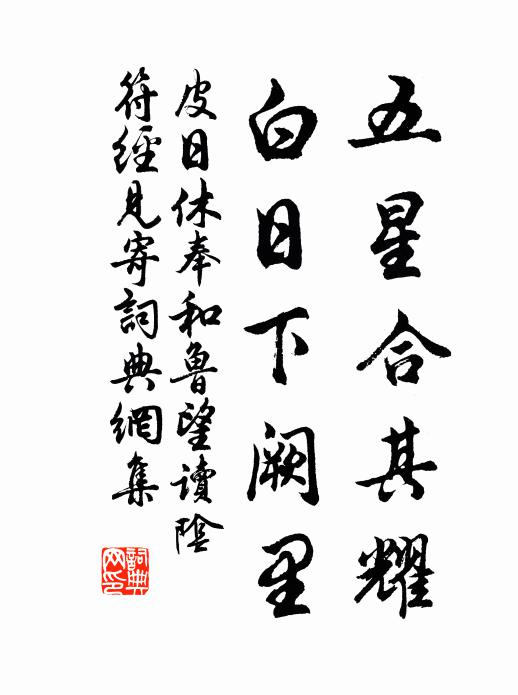 五星合其耀
白日下阙里
皮日休奉和魯望讀陰
符經見寄詞典網集
詞典
网印